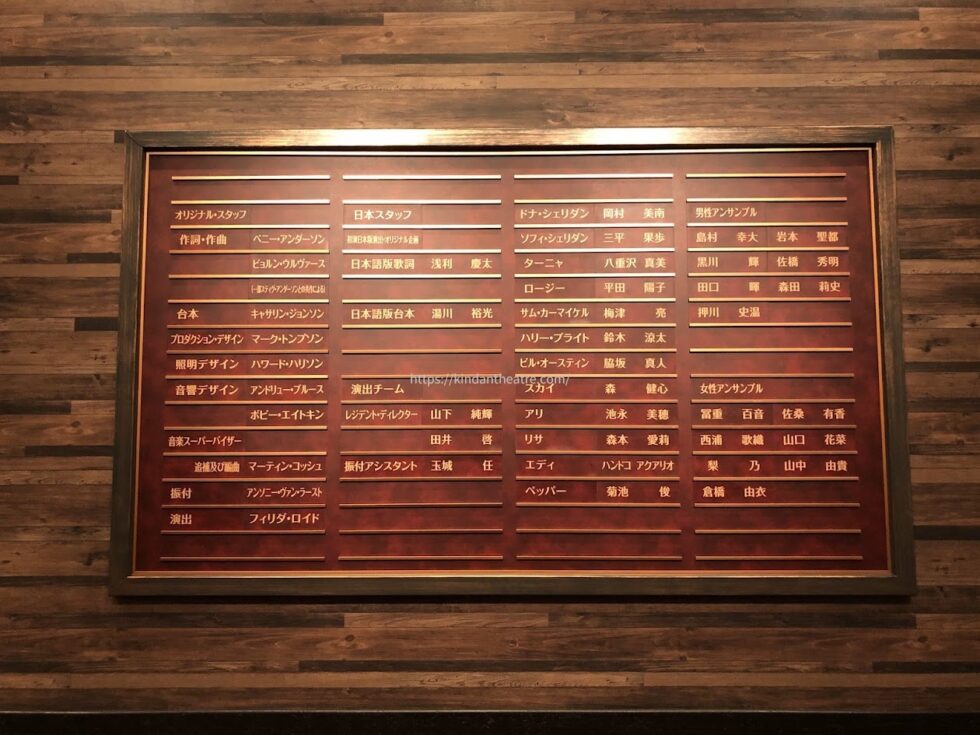 オリジナル・スタッフ
作詞・作曲 ベニー・アンダーソン
ビョルン・ウルヴァース
(一部スティッグ・アンダーソンとの共作による)
台本 キャサリン・ジョンソン
プロダクション・デザイン マーク・トンプソン
照明デザイン ハワード・ハリソン
音響デザイン アンドリュー・ブルース
ボビー・エイトキン
音楽スーパーバイザー
追補及び編曲 マーティン・コッシュ
振付 アンソニー・ヴァン・ラースト
演出 フィリダ・ロイド
日本スタッフ
初演日本版演出・オリジナル企画
日本語版歌詞 浅利 慶太
日本語版台本 湯川 裕光
演出チーム
レジデント・ディレクター 山下 純輝
田井 啓
振付アシスタント 玉城 任
ドナ・シェリダン 岡村 美南
ソフィ・シェリダン 三平 果歩
ターニャ 八重沢 真美
ロージー 平田 陽子
サム・カーマイケル 梅津 亮
ハリー・ブライト 鈴木 涼太
ビル・オースティン 脇坂 真人
スカイ 森 健心
アリ 池永 美穂
リサ 森本 愛莉
エディ ハンドコ アクアリオ
ペッパー 菊池 俊
男性アンサンブル
島村 幸大 岩本 聖都
黒川 輝 佐橋 秀明
田口 暉 森田 莉史
押川 史温
女性アンサンブル
冨重 百音 佐桑 有香
西浦 歌織 山口 花菜
梨 乃 山中 由貴
倉橋 由衣
https://kindantheatre.com/